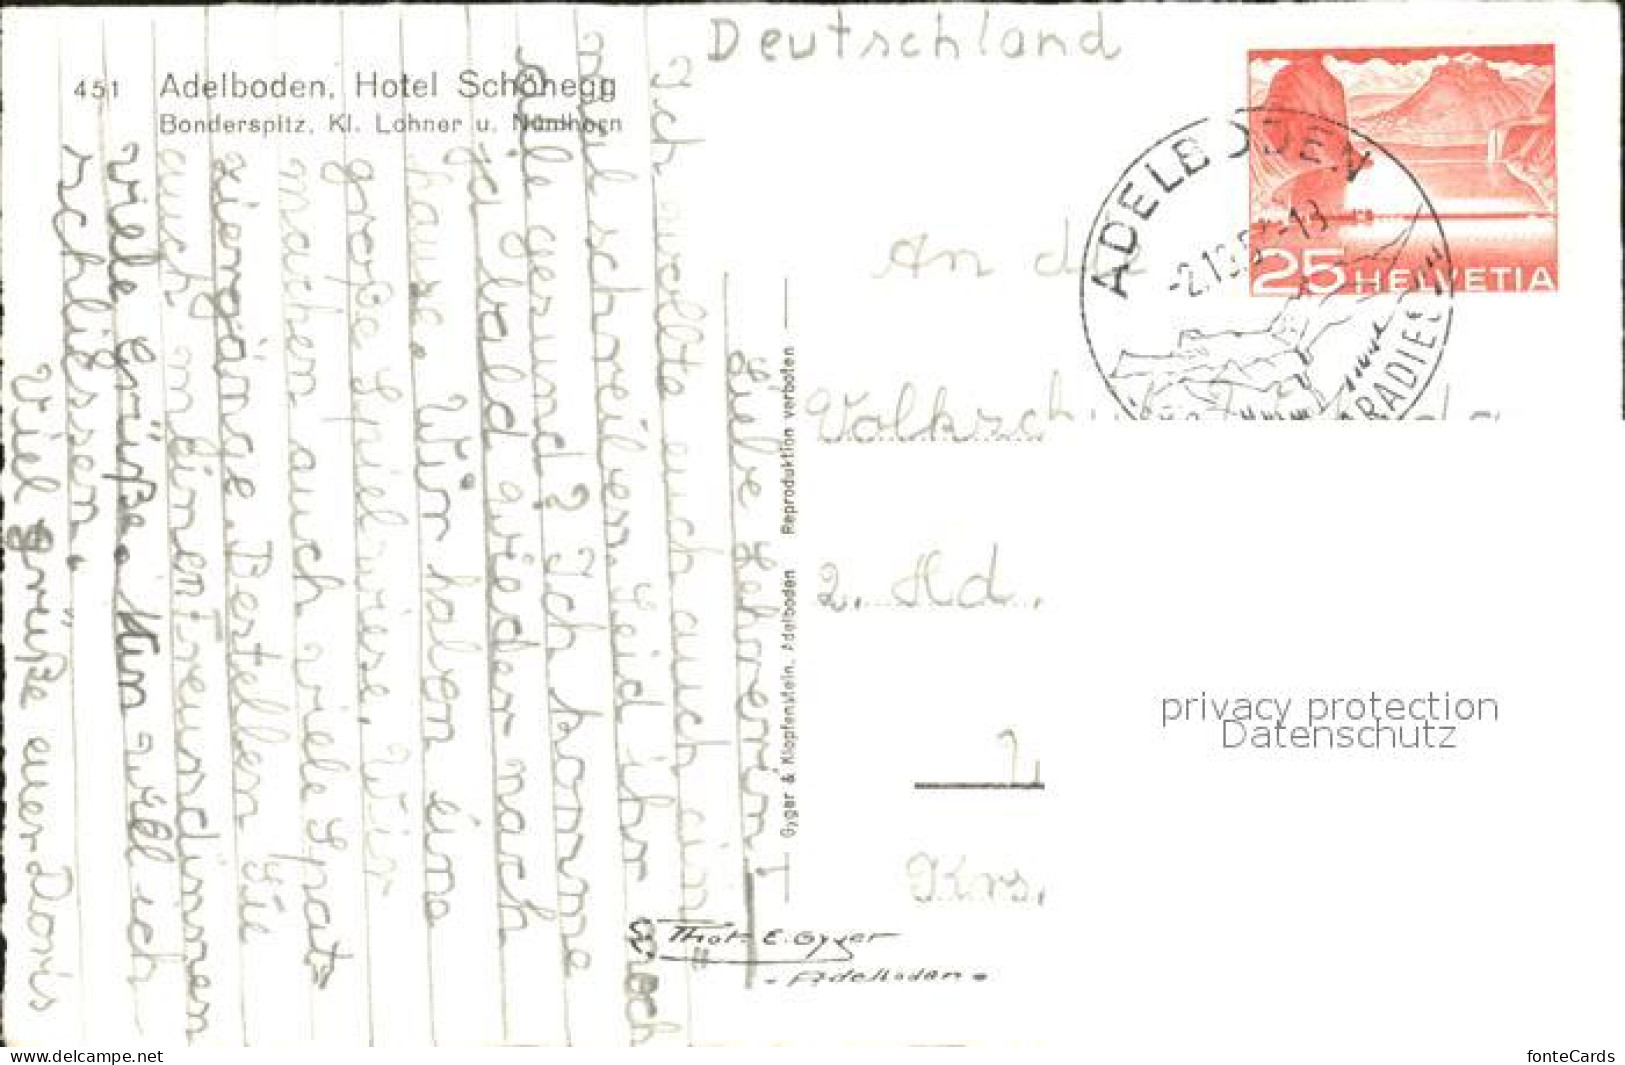 451 Adelboden, Hotel Schönegg
Bonderspitz, Kl. Lohner u. Nünihorn
Deutschland
HELVETIA 25
ADELBODEN
An die
2. Kl.
Krs.
Liebe Lehrerin!
Ich wollte euch auch ein
Mal schreiben. Seid ihr noch
alle gesund? Ich komme
ja bald wieder nach
hause. Wir haben eine
große Spielwiese. Wir
machen auch viele Spat=
ziergänge. Bestellen Sie
auch meinen Freundinnen
viele Grüße. Nun will ich
schliessen.
Viel grüße euer Doris
Gyger & Klopfenstein, Adelboden Reproduktion verboten
Phot. E. Gyger
- Adelboden -
privacy protection
Datenschutz
www.delcampe.net
fonteCards